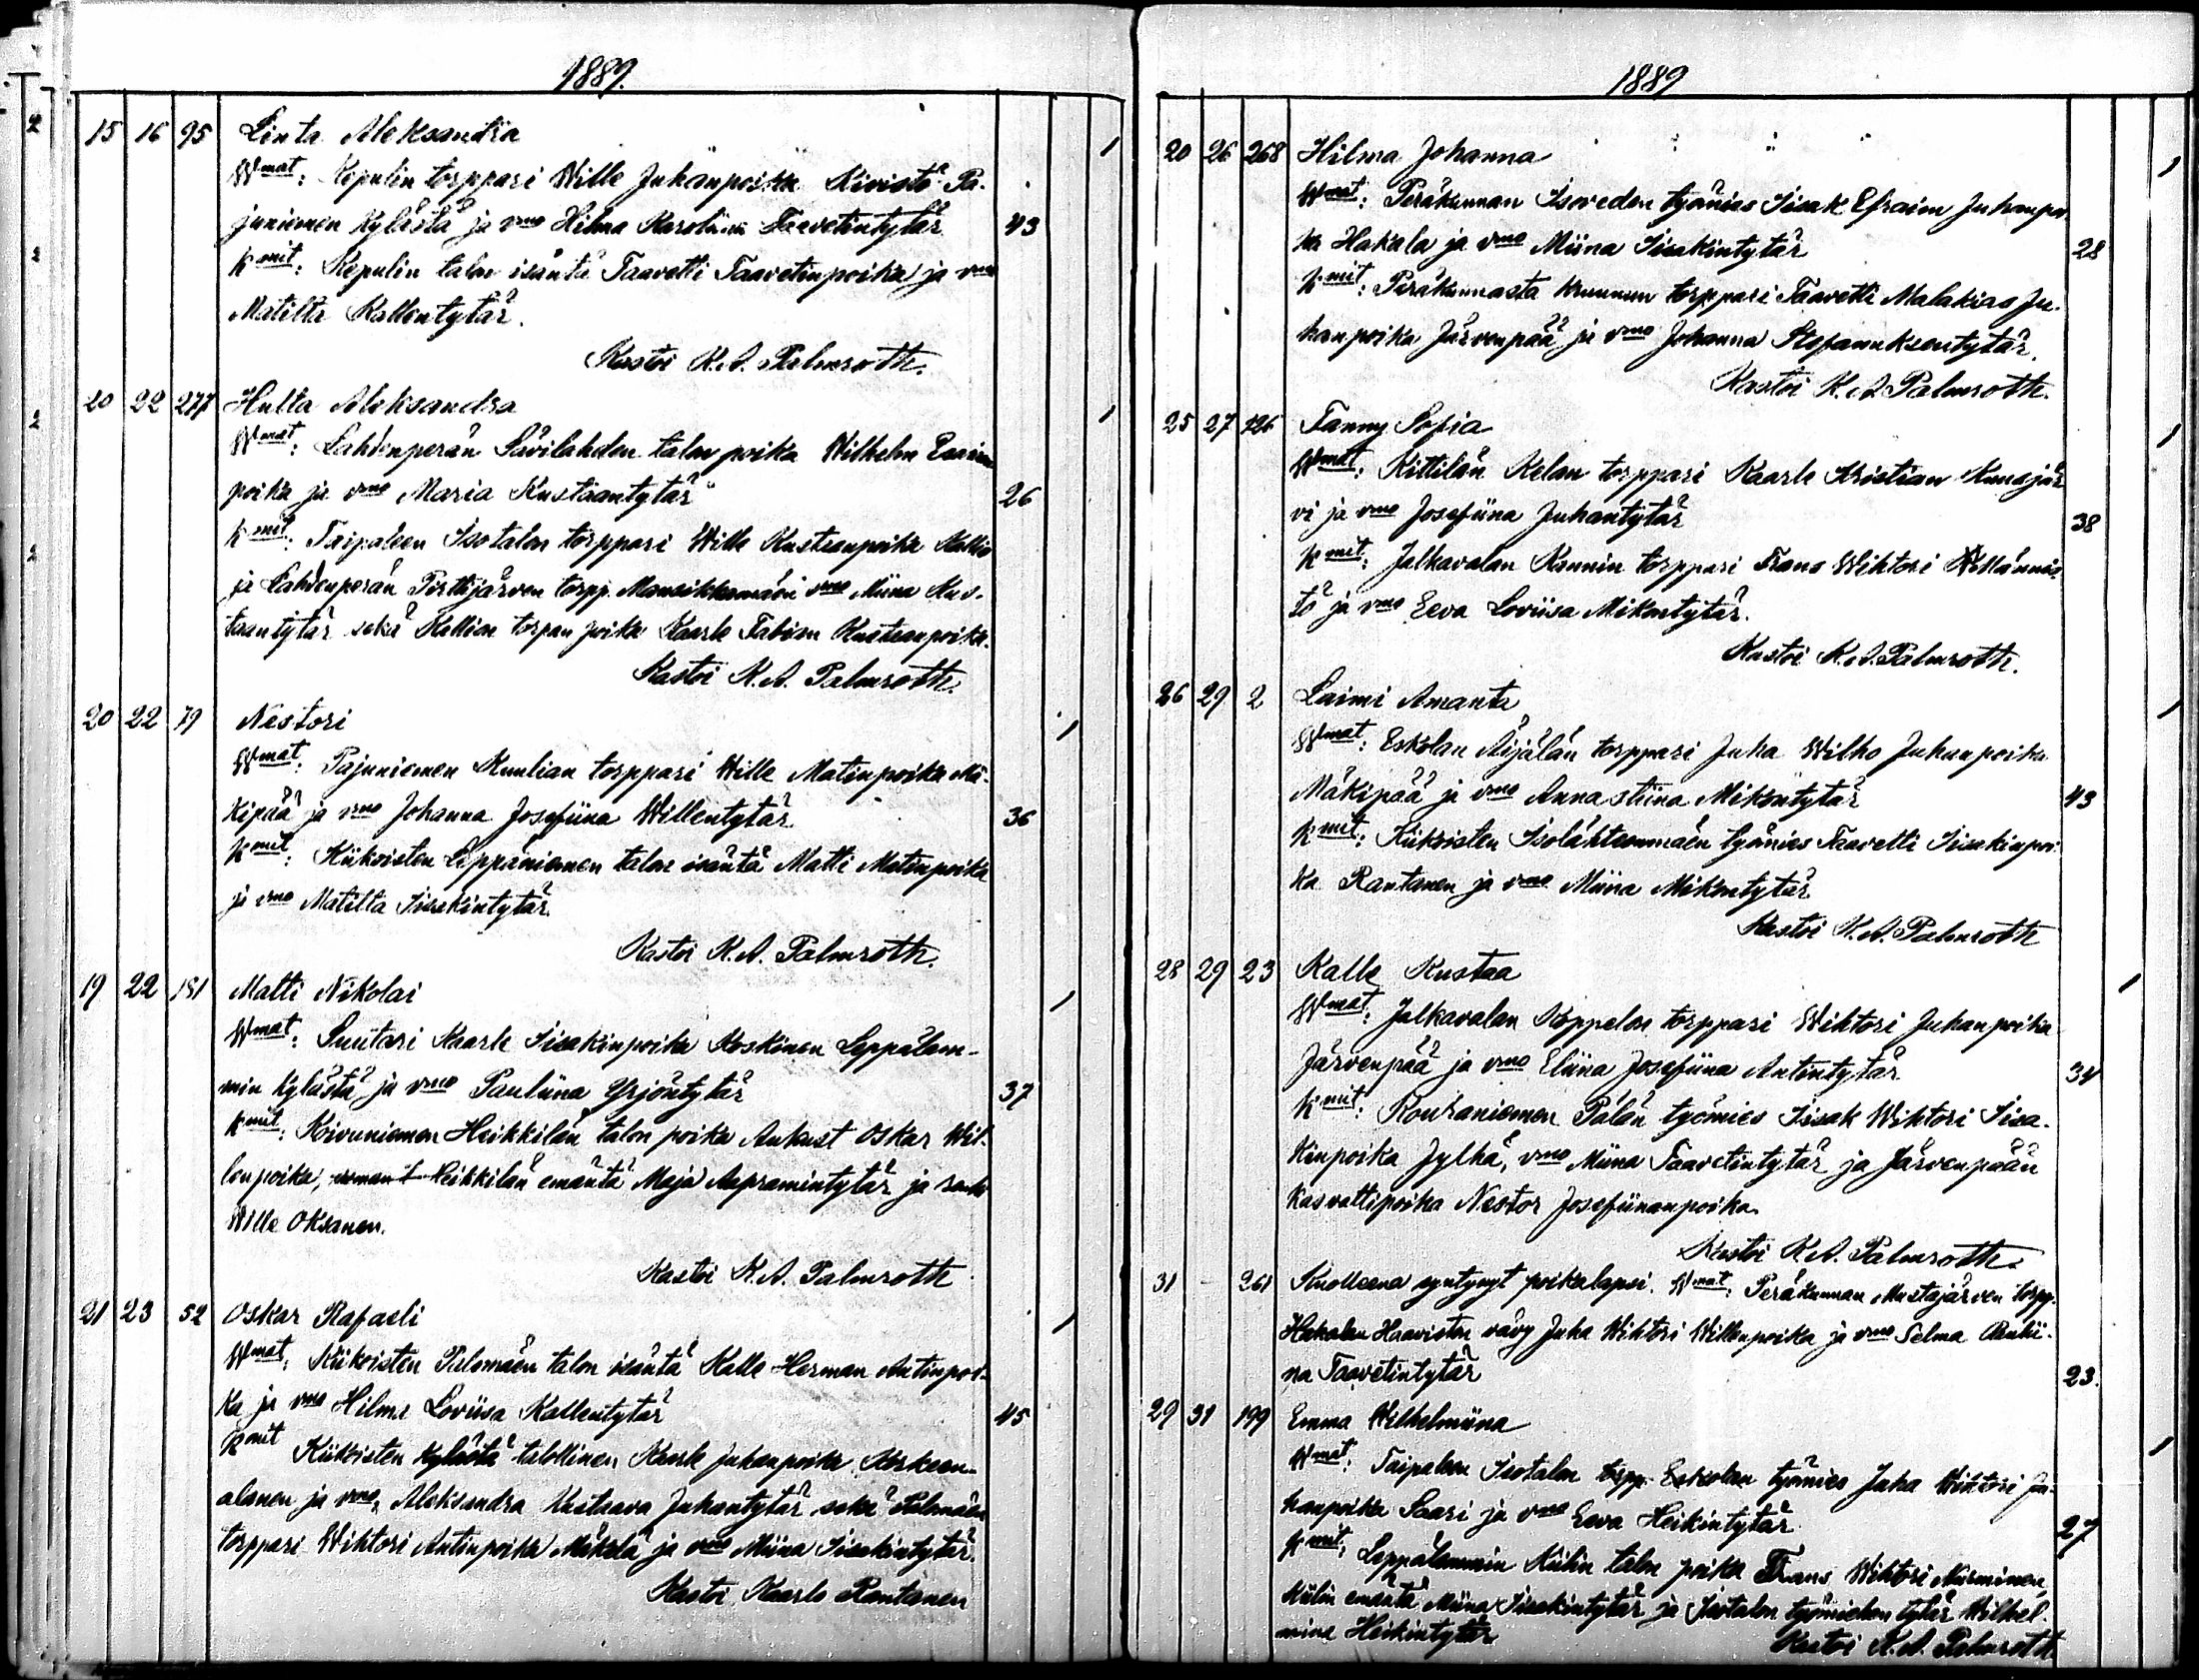 1889.
15 16 95 Linta Aleksandra 1
Wmat: Kepulin torppari Wille Juhanpoika Kivistö Pa-
juniemen kylästä ja vmo Hilma Karoliina Taavetintytär 43
Kmit: Kepulin talon isäntä Taavetti Taavetinpoika ja vmo
Matilta Kallentytär.
Kastoi K.A. Palmroth.
20 22 277 Hulta Aleksandra 1
Wmat: Lahdenperän Savilahden talon poika Wilhelm
poika ja vmo Maria Kustaantytär 26
Kmit: Taipaleen Isotalon torppari Wille Kustaanpoika Kallio
ja Lahdenperän Pirttijärven torpp. Mansikkamäen vmo Miina Kus-
taantytär sekä Kallion torpan poika Kaarle Fabian Kustaanpoika.
Kastoi K.A. Palmroth.
20 22 79 Nestori 1
Wmat: Pajuniemen Kuulian torppari Wille Matinpoika Mä-
kipää ja vmo Johanna Josefiina Willentytär 36
Kmit: Kiikoisten Leppäniemen talon isäntä Matti Matinpoika
ja vmo Matilta Iisakintytär.
Kastoi K.A. Palmroth.
19 22 181 Matti Nikolai 1
Wmat: Suutari Kaarle Iisakinpoika Koskinen Leppälam-
min kylästä ja vmo Pauliina Yrjöntytär 37
Kmit: Koivuniemen Heikkilän talon poika Aukust Oskar Wil-
lenpoika, Heikkilän emäntä Maja Aapramintytär ja
Wille Oksanen.
Kastoi K.A. Palmroth
21 23 52 Oskar Rafaeli 1
Wmat: Kiikoisten Palomäen talon isäntä Kalle Herman Antinpoi-
ka ja vmo Hilma Loviisa Kallentytär 45
Kmit Kiikoisten kylästä talollinen Kaarle Juhanpoika Koskeen-
alanen ja vmo, Aleksandra Kustaava Juhantytär sekä Palomäen
torppari Wihtori Antinpoika Mäkelä ja vmo Miina Iisakintytär.
Kastoi Kaarlo Rantanen
1889
20 26 268 Hilma Johanna 1
Wmat: Peräkunnan Isoveden työmies Iisak Efraim Juhanpoi
ka Hakala ja vmo Miina Iisakintytär 28
Kmit: Peräkunnasta kruunun torppari Taavetti Malakias Ju-
hanpoika Järvenpää ja vmo Johanna Stefanuksentytär.
Kastoi K.A. Palmroth.
25 27 126 Fanny Sofia 1
Wmat: Kittilän Kelan torppari Kaarle Kristian Kuusjär
vi ja vmo Josefiina Juhantytär 38
Kmit: Jalkavalan Kannin torppari Frans Wihtori
tö ja vmo Eeva Loviisa Mikontytär.
Kastoi K.A. Palmroth.
26 29 2 Laimi Amanta 1
Wmat: Eskolan Äijälän torppari Juha Wilho Juhanpoika
Mäkipää ja vmo Annastiina Mikontytär 43
Kmit: Kiikoisten Isolähteenmäen työmies Taavetti Iisakinpoi-
ka Rantanen ja vmo Miina Mikontytär
Kastoi K.A. Palmroth
28 29 23 Kalle Kustaa 1
Wmat: Jalkavalan Koppelon torppari Wihtori Juhanpoika
Järvenpää ja vmo Eliina Josefiina Antintytär 34
Kmit: Kouraniemen Pälän työmies Iisak Wihtori Iisa-
kinpoika Jylhä, vmo Miina Taavetintytär ja Järvenpään
kasvattipoika Nestor Josefiinanpoika.
Kastoi K.A. Palmroth.
31 - 261 Kuolleena syntynyt poikalapsi. Wmat: Peräkunnan Mustajärven torpp.
Hakalan Haaviston vävy Juha Wihtori Willenpoika ja vmo Selma Paulii-
na Taavetintytär 23.
29 31 199 Emma Wilhelmiina 1
Wmat: Taipaleen Isotalon torpp. Eskolan työmies Juha Wihtori Ju-
hanpoika Saari ja vmo Eeva Heikintytär 27
Kmit: Leppälammin Kiilin talon poika Frans Wihtori Nurminen,
Kiilin emäntä Miina Iisakintytär ja Isotalon työmiehen tytär Wilhel-
miina Heikintytär
Kastoi K.A. Palmroth